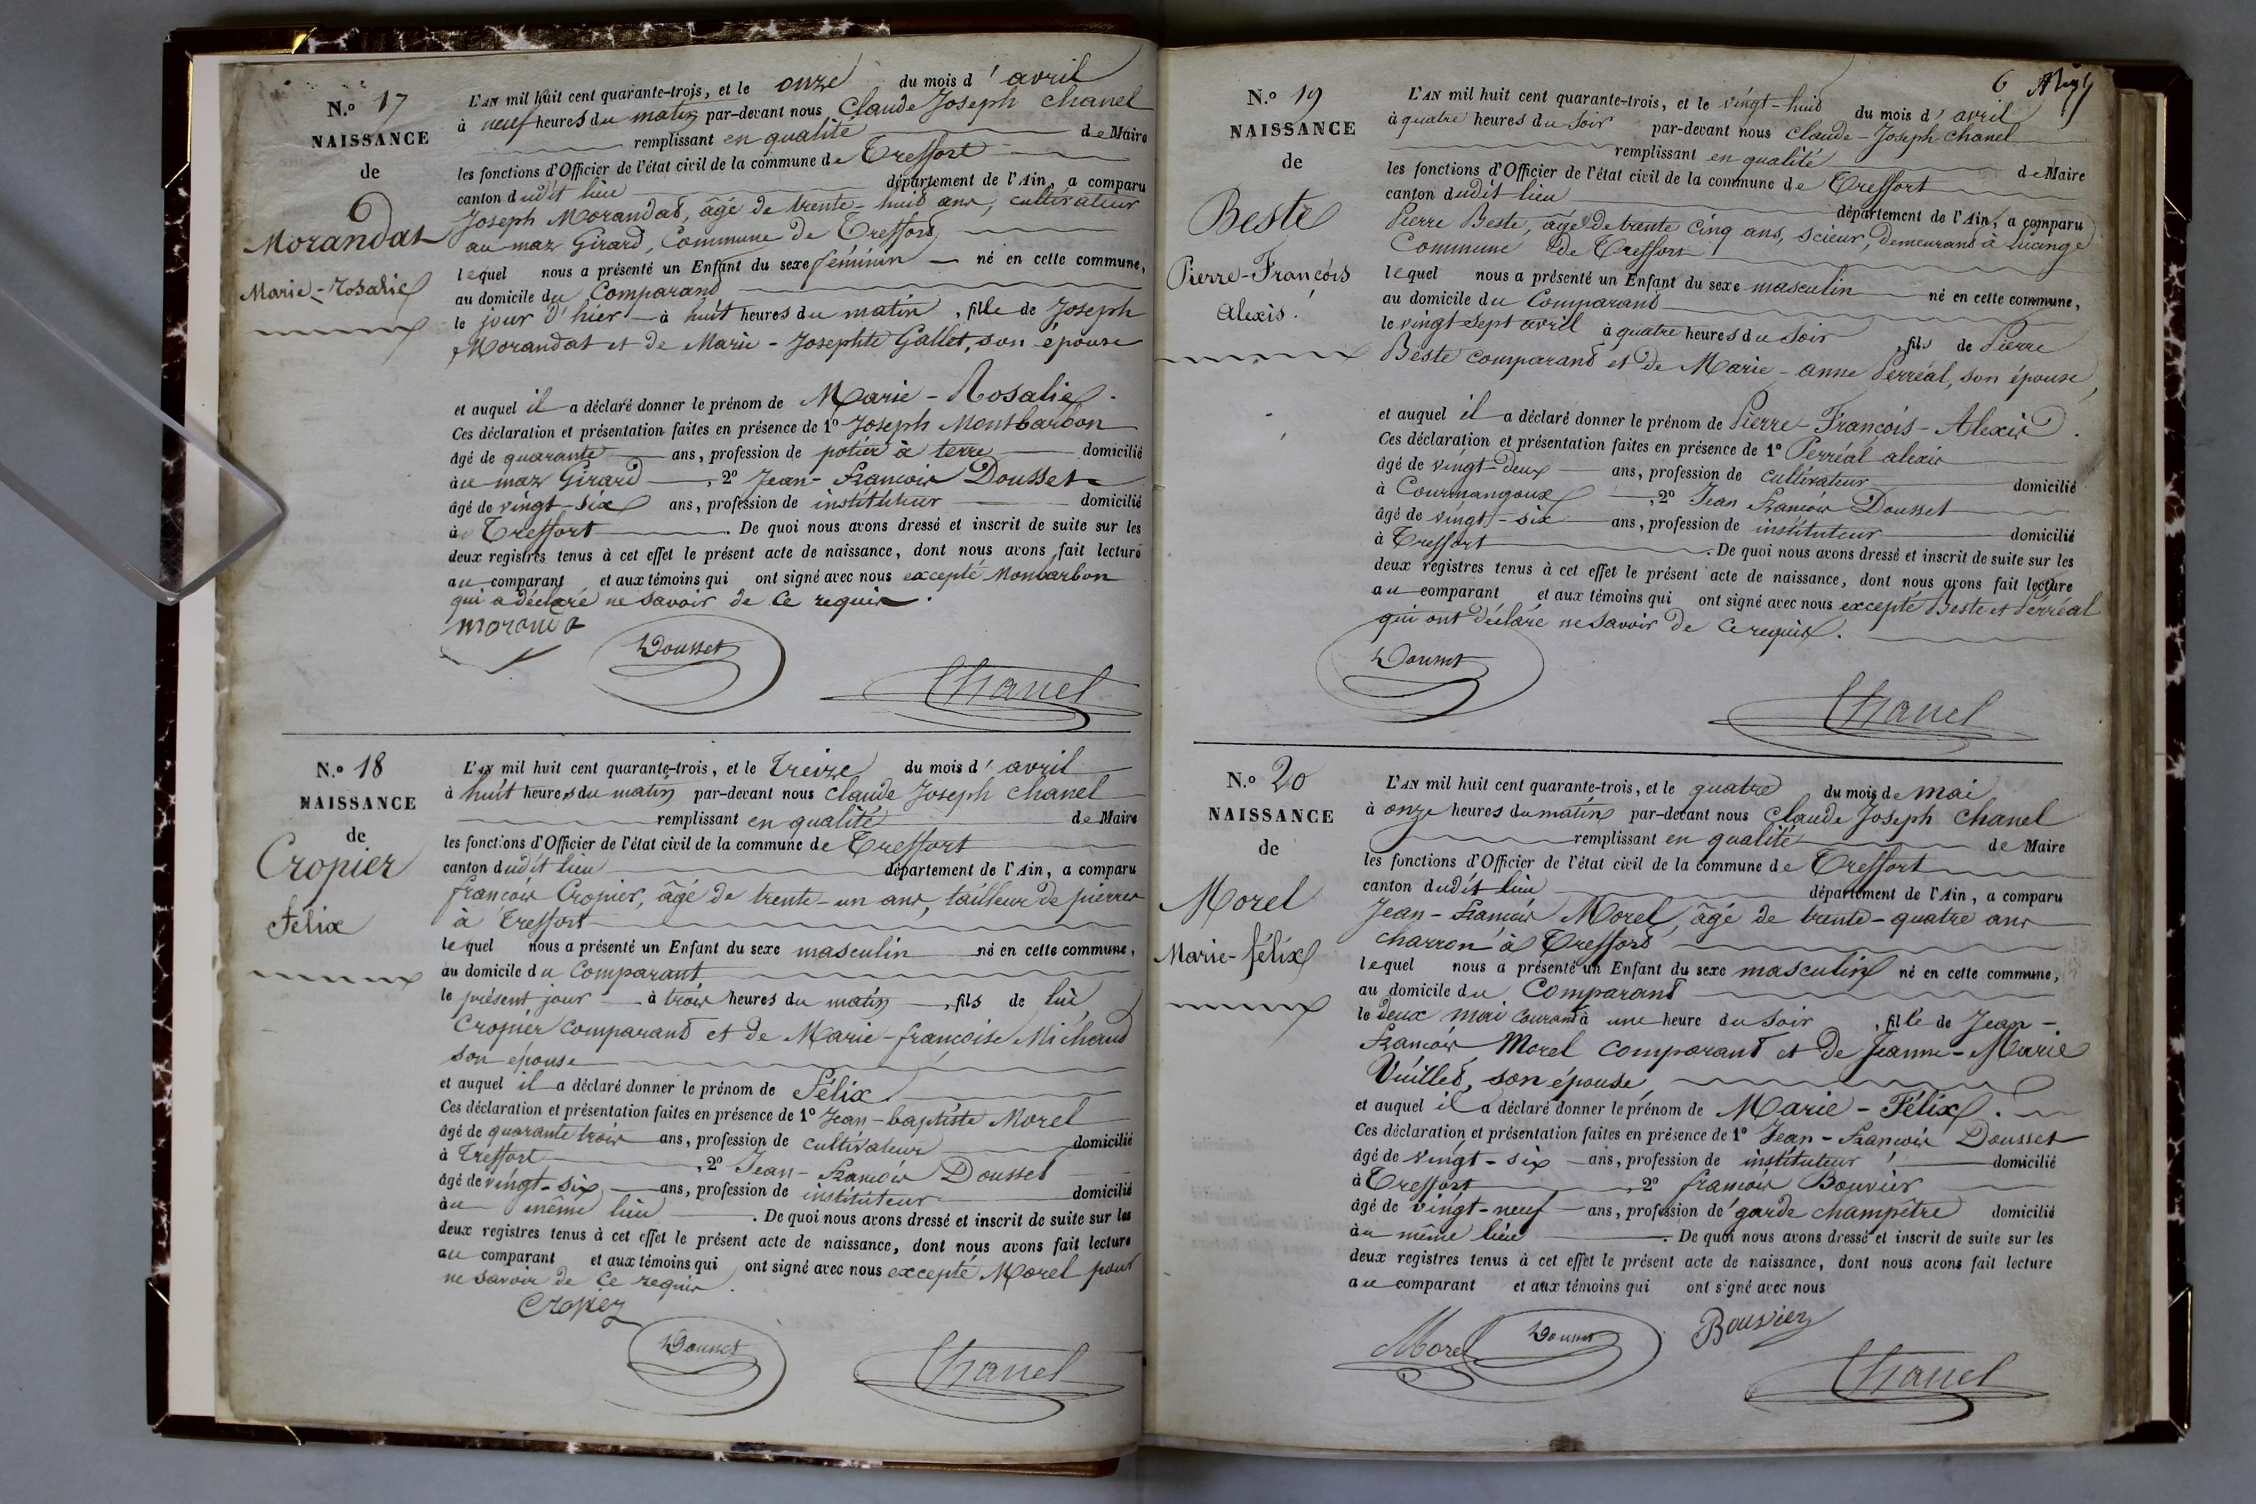 N.º 17
NAISSANCE
de
Morandat
Marie-Rosalie
L'AN mil huit cent quarante-trois, et le onze du mois d'avril
à neuf heures du matin par-devant nous Claude Joseph Chanel
remplissant en qualité de Maire
les fonctions d'Officier de l'état civil de la commune de Treffort
canton dudit lieu département de l'Ain, a comparu
Joseph Morandat, âgé de trente-huit ans, cultivateur
au maz Girard, Commune de Treffort,
lequel nous a présenté un Enfant du sexe féminin né en cette commune,
au domicile du Comparant
le jour d'hier à huit heures du matin, fille de Joseph
Morandat et de Marie-Josephte Gallet, son épouse
et auquel il a déclaré donner le prénom de Marie-Rosalie.
Ces déclaration et présentation faites en présence de 1º Joseph Montbarbon
âgé de quarante ans, profession de potier à terre domicilié
au maz Girard, 2º Jean-François Dousset
âgé de vingt-six ans, profession de instituteur domicilié
à Treffort. De quoi nous avons dressé et inscrit de suite sur les
deux registres tenus à cet effet le présent acte de naissance, dont nous avons fait lecture
au comparant et aux témoins qui ont signé avec nous excepté Monbarbon
qui a déclaré ne savoir de ce requis.
Dousset
Chanel
N.º 18
NAISSANCE
de
Cropier
Félix
L'AN mil huit cent quarante-trois, et le treize du mois d'avril
à huit heures du matin par-devant nous Claude Joseph Chanel
remplissant en qualité de Maire
les fonctions d'Officier de l'état civil de la commune de Treffort
canton dudit lieu département de l'Ain, a comparu
françois Cropier, âgé de trente-un ans, tailleur de pierres
à Treffort
lequel nous a présenté un Enfant du sexe masculin né en cette commune,
au domicile du Comparant,
le présent jour à trois heures du matin, fils de lui
Cropier comparant et de Marie-françoise Michaud
son épouse
et auquel il a déclaré donner le prénom de Félix.
Ces déclaration et présentation faites en présence de 1º Jean-baptiste Morel
âgé de quarante trois ans, profession de cultivateur domicilié
à Treffort, 2º Jean-François Dousset
âgé de vingt-six ans, profession de instituteur domicilié
au même lieu. De quoi nous avons dressé et inscrit de suite sur les
deux registres tenus à cet effet le présent acte de naissance, dont nous avons fait lecture
au comparant et aux témoins qui ont signé avec nous excepté Morel pour
ne savoir de ce requis.
Cropier
Dousset
Chanel
6
N.º 19
NAISSANCE
de
Beste
Pierre-François
Alexis.
L'AN mil huit cent quarante-trois, et le vingt-huit du mois d'avril
à quatre heures du soir par-devant nous Claude-Joseph Chanel
remplissant en qualité de Maire
les fonctions d'Officier de l'état civil de la commune de Treffort
canton dudit lieu département de l'Ain, a comparu
Pierre Beste, âgé de trente cinq ans, scieur, demeurant à Lucinge
Commune de Treffort
lequel nous a présenté un Enfant du sexe masculin né en cette commune,
au domicile du Comparant
le vingt-sept avril à quatre heures du soir, fils de Pierre
Beste comparant et de Marie-anne Perréal, son épouse,
et auquel il a déclaré donner le prénom de Pierre-François-Alexis.
Ces déclaration et présentation faites en présence de 1º Perréal alexis
âgé de vingt-deux ans, profession de cultivateur domicilié
à Courmangoux, 2º Jean François Dousset
âgé de vingt-six ans, profession de instituteur domicilié
à Treffort. De quoi nous avons dressé et inscrit de suite sur les
deux registres tenus à cet effet le présent acte de naissance, dont nous avons fait lecture
au comparant et aux témoins qui ont signé avec nous excepté Beste et Perréal
qui ont déclaré ne savoir de ce requis.
Dousset
Chanel
N.º 20
NAISSANCE
de
Morel
Marie-félix
L'AN mil huit cent quarante-trois, et le quatre du mois de mai
à onze heures du matin par-devant nous Claude Joseph Chanel
remplissant en qualité de Maire
les fonctions d'Officier de l'état civil de la commune de Treffort
canton dudit lieu département de l'Ain, a comparu
Jean-François Morel, âgé de trente-quatre ans
charron à Treffort,
lequel nous a présenté un Enfant du sexe masculin né en cette commune,
au domicile du Comparant
le deux mai courant à une heure du soir, fille de Jean-
François Morel comparant et de Jeanne-Marie
Vuillet, son épouse,
et auquel il a déclaré donner le prénom de Marie-Félix.
Ces déclaration et présentation faites en présence de 1º Jean-François Dousset
âgé de vingt-six ans, profession de instituteur domicilié
à Treffort, 2º françois Bouvier
âgé de vingt-neuf ans, profession de garde champêtre domicilié
au même lieu. De quoi nous avons dressé et inscrit de suite sur les
deux registres tenus à cet effet le présent acte de naissance, dont nous avons fait lecture
au comparant et aux témoins qui ont signé avec nous
Morel Dousset Bouvier
Chanel